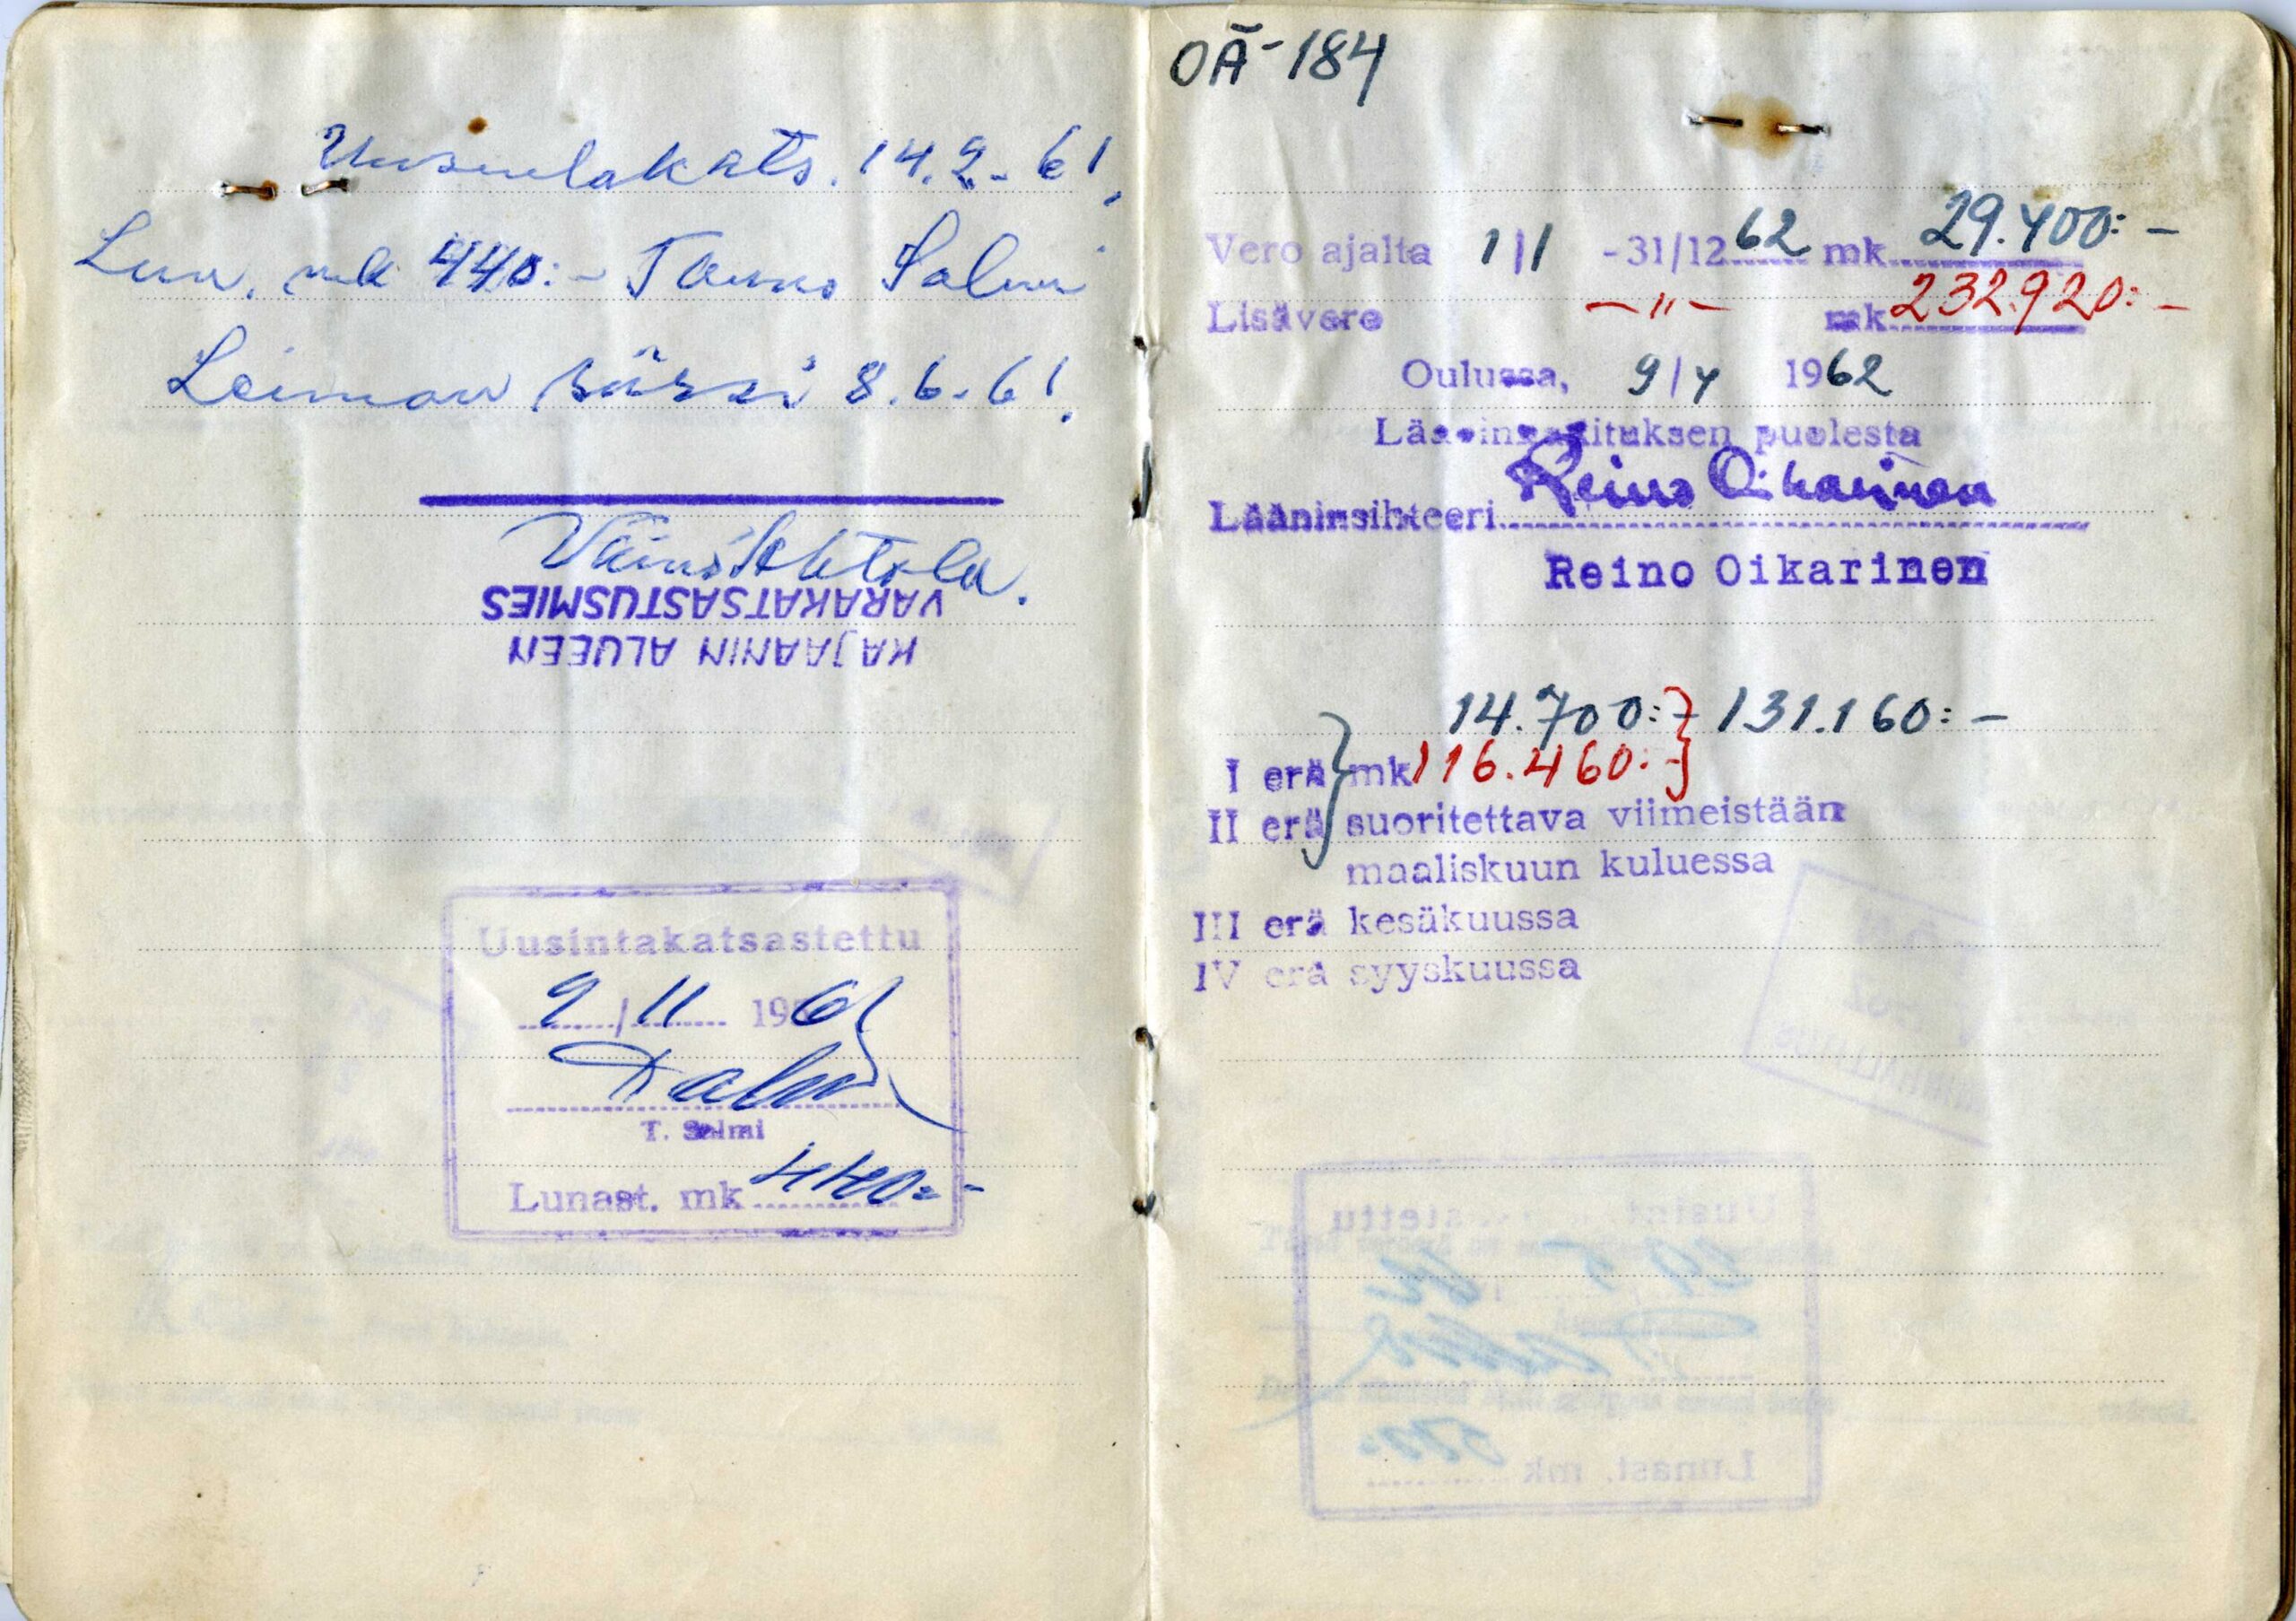 Uusintakats. 14.2.-61.
Lun. mk 440:- Tauno Salmi
Leiman siirsi 8.6.-61.
Väinö Ahtola.
KAJAANIN ALUEEN
VARAKATSASTUSMIES
Uusintakatsastettu
2/11 1961
T. Salmi
Lunast. mk 440:-
OÄ-184
Vero ajalta 1/1 -31/12 62 mk 29.400:-
Lisävero -"- mk 232.920:-
Oulussa, 9/4 1962
Lääninhallituksen puolesta
Lääninsihteeri Reino Oikarinen
Reino Oikarinen
14.700:- 131.160:-
I erä mk 116.460:-
II erä suoritettava viimeistään
maaliskuun kuluessa
III erä kesäkuussa
IV erä syyskuussa